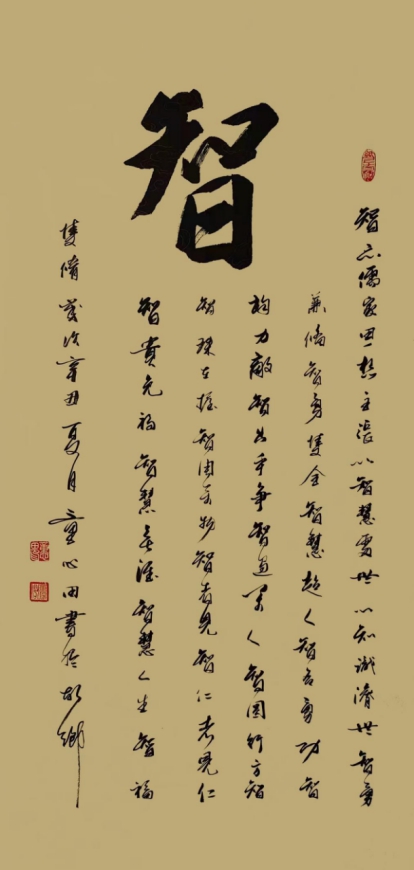 智
智亦儒家思想主張以智慧處世以知識濟世智勇
兼備智勇雙全智慧超人智名勇功智
均力敵智 爭智過万人智圆行方智
智珠在握智周万物智者見智仁者見仁
智貴免禍智慧無涯智慧人生智福
雙脩歲次辛丑夏月童心田書於故鄉